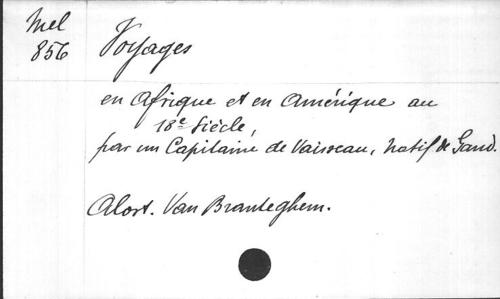 Mel
856
Voyages
en Afrique et en Amérique au
18e Siècle,
par un Capitaine de Vaisseau, natif de Gand.
Alost. Van Branteghem.